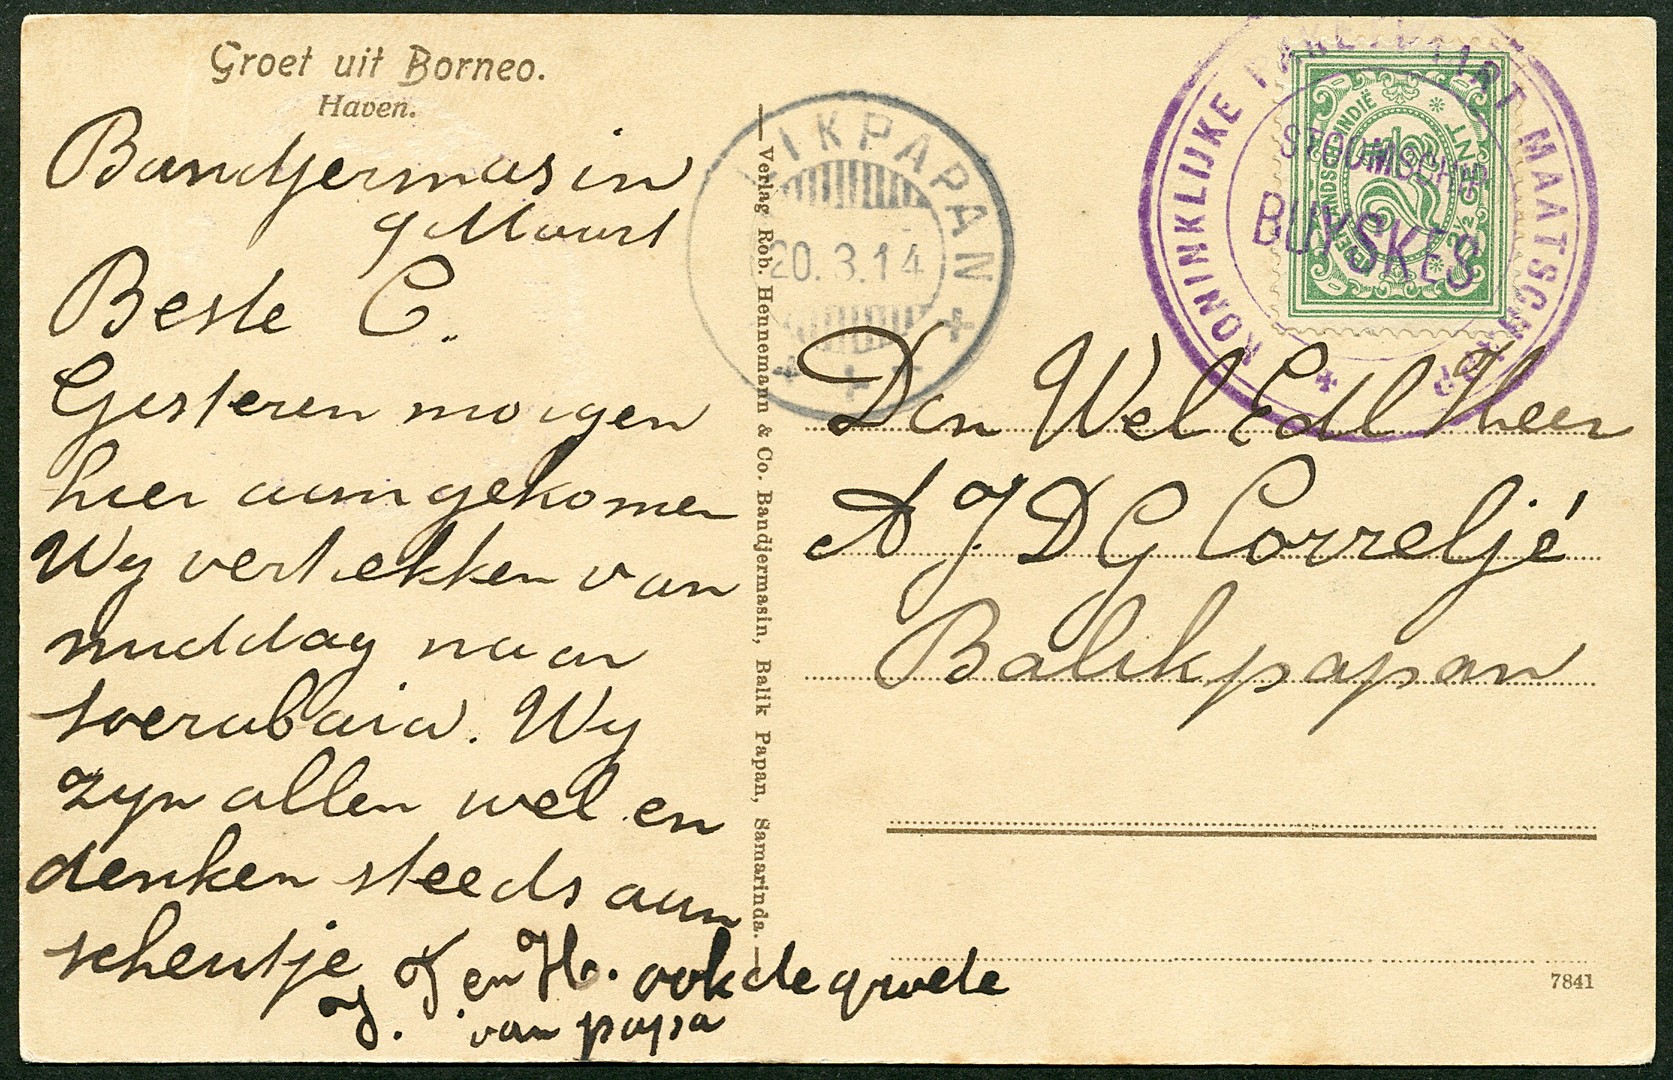 Groet uit Borneo.
Haven.
Bandjermasin
9 Maart
Beste C.
Gisteren morgen
hier aangekomen
Wy vertrekken van
middag naar
soerabaia. Wy
zyn allen wel en
denken steeds aan
scheutje J en H. ook de groete
J. van papa
Verlag Rob. Hennemann & Co. Bandjermasin, Balik Papan, Samarinda.
IKPAPAN
20.3.14
KONINKLIJKE PAKETVAART MAATSCHAPPIJ
STOOMSCHIP
BUYSKES
NEDERLANDSCH INDIË
2½ CENT
2½
Den Wel Edl Heer
A J D G Correljé
Balikpapan
7841